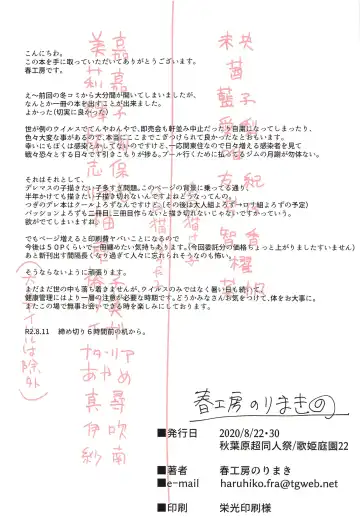 こんにちわ。
この本を手に取っていただいてありがとうございます。
春工房です。
え～前回の冬コミから大分間が開いてしまいましたが、
なんとか一冊の本を出すことが出来ました。
よかった(切実に良かった)
世が例のウイルスでてんやわんやで、即売会も軒並み中止だったり自粛になってしまったり、
色々大変な事があるので、本当にここまでこぎつけられて良かったなとおもいます。
幸いにもぼくは感染とかしてないのですけど、一応関東住なので日々増える感染者を見て
戦々恐々とする日々です引きこもりが捗る。プール行くために払ってるジムの月謝が勿体ない。
それはそれとして、
デレマスの子描きたい子多すぎ問題。このページの背景に乗ってる通り、
半年かけても描きたい子描き切れないんですよねどうなってんの。
つぎのデレ本はクールよろずなんですけど、(その後は大人組よろず→ロリ組よろずの予定)
パッションよろずも二冊目、三冊目作らないと描き切れないじゃないですかっていう。
欲がでてしまいますね。
でもページ増えると印刷費ヤバいことになるので
今後は50Pくらいで一冊纏めたい気持ちもあります。(今回委託分の価格ちょっと上がりましたすいません)
あと新刊出す間隔長くなり過ぎて人々に忘れ去られそうなのも怖い。
そうならないように頑張ります。
まだまだ世の中も落ち着きませんが、ウイルスのみではなく暑い日も続いて、
健康管理にはより一層の注意が必要な時期です。どうかみなさんお気をつけて、体をお大事に。
またこの場で無事お会いできる時を楽しみにしております。
R2.8.11 締め切り6時間前の机から。
春工房のりまき
■発行日 2020/8/22・30
秋葉原超同人祭/歌姫庭園22
■著者 春工房のりまき
■e-mail haruhiko.fra@tgweb.net
■印刷 栄光印刷様